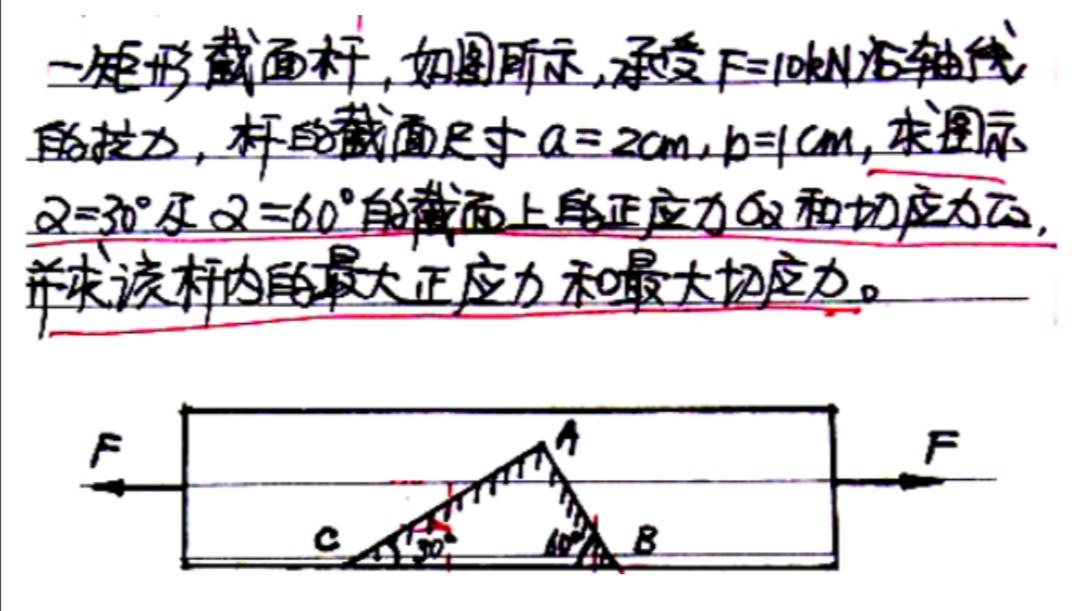 一矩形截面杆,如图所示,承受F=10kN沿轴线
的拉力,杆的截面尺寸a=2cm,b=1cm,求图示
α=30°及α=60°的截面上的正应力σα和切应力τα,
并求该杆内的最大正应力和最大切应力。
F
A
F
C
30°
60°
B